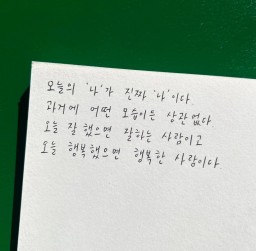 오늘의 '나'가 진짜 '나'이다.
과거에 어떤 모습이든 상관없다.
오늘 잘 했으면 잘하는 사람이고
오늘 행복했으면 행복한 사람이다